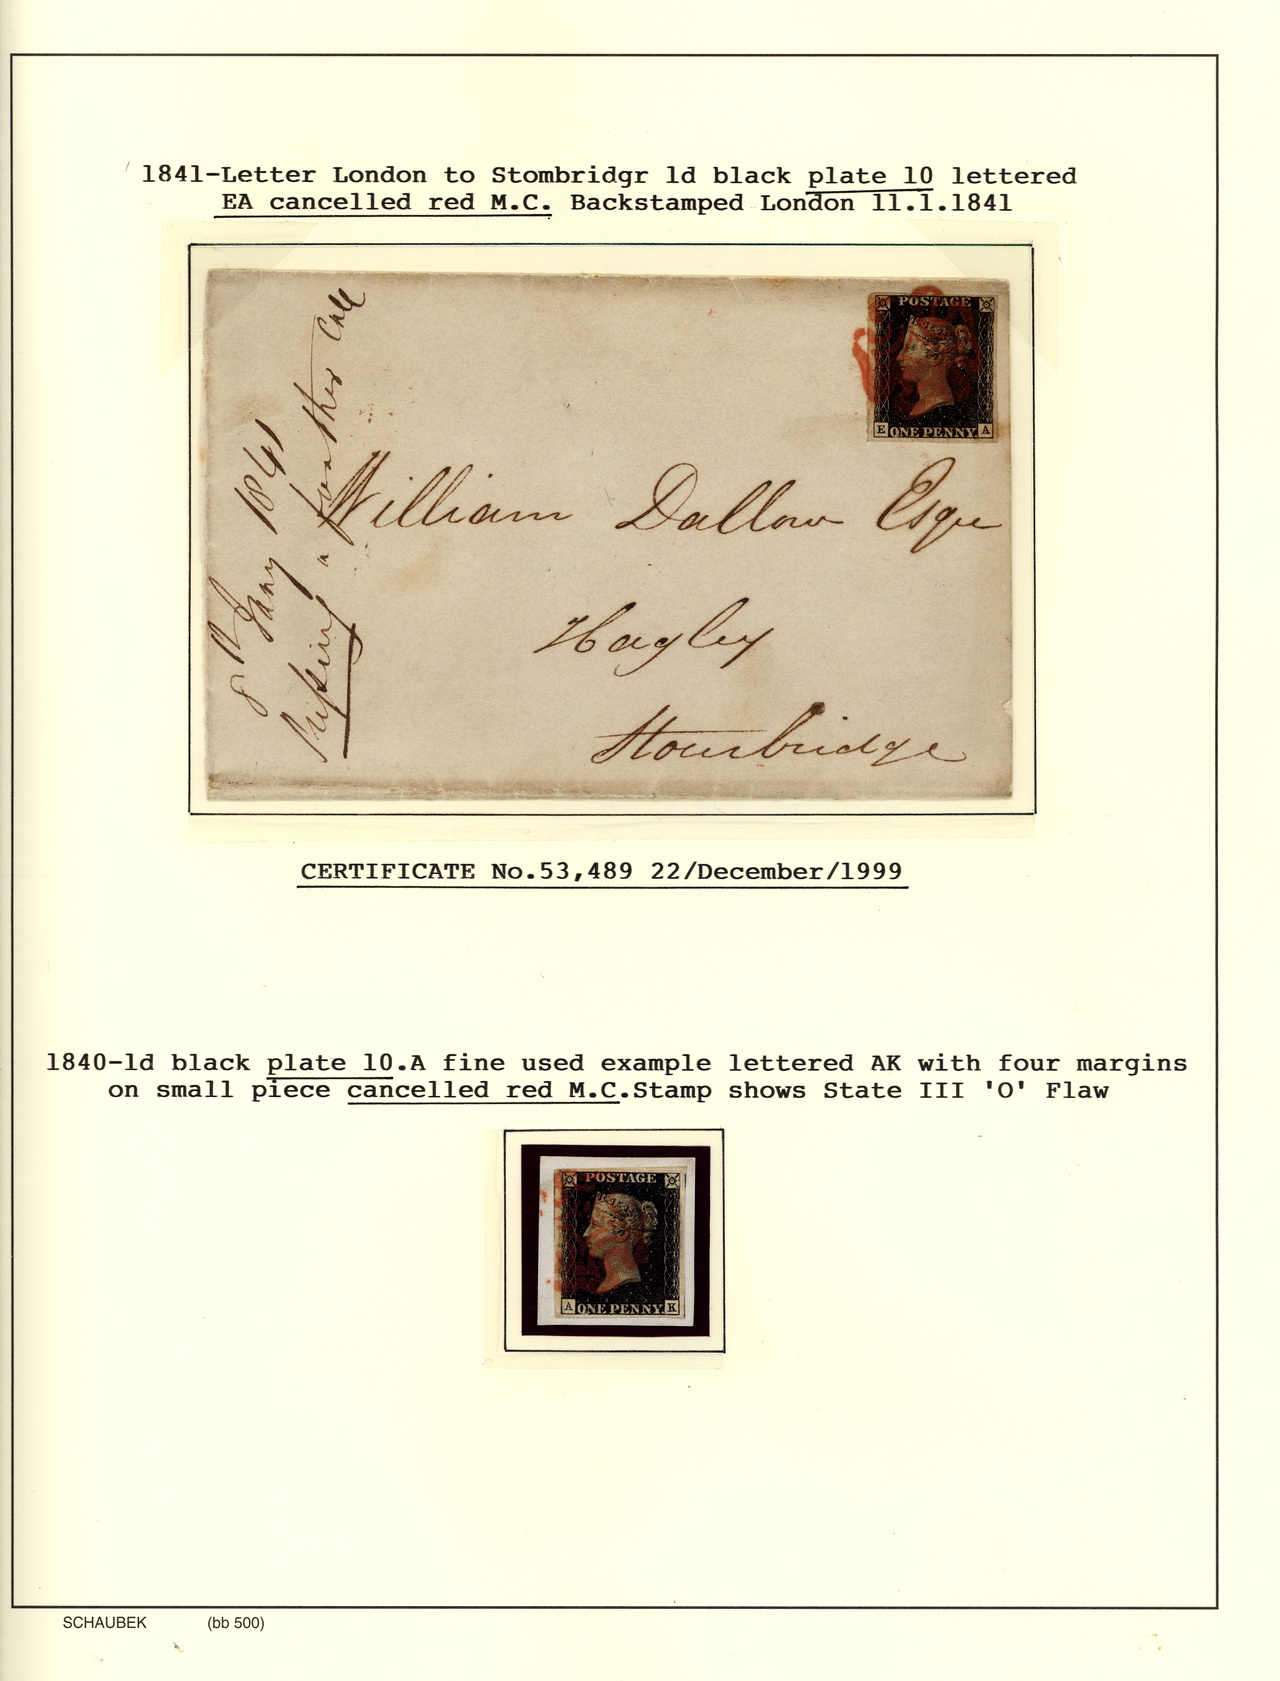 1841-Letter London to Stombridgr 1d black plate 10 lettered
EA cancelled red M.C. Backstamped London 11.1.1841
POSTAGE
E ONE PENNY A
8th Jany 1841
a further Call
William Dallow Esqre
Hagley
Stourbridge
CERTIFICATE No.53,489 22/December/1999
1840-1d black plate 10.A fine used example lettered AK with four margins
on small piece cancelled red M.C.Stamp shows State III 'O' Flaw
POSTAGE
A ONE PENNY K
SCHAUBEK (bb 500)